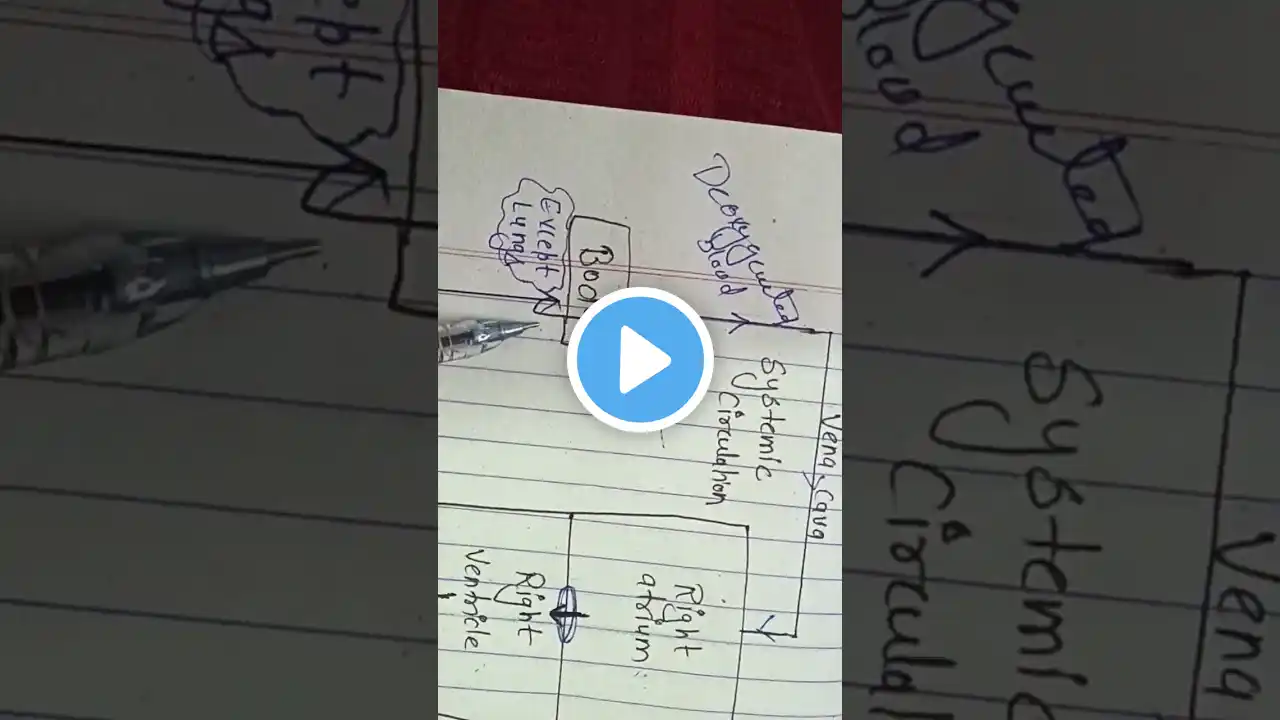 Deoxygenated
Blood
Except
Lungs
Systemic
Circulation
Vena Cava
Right
atrium
Right
Ventricle